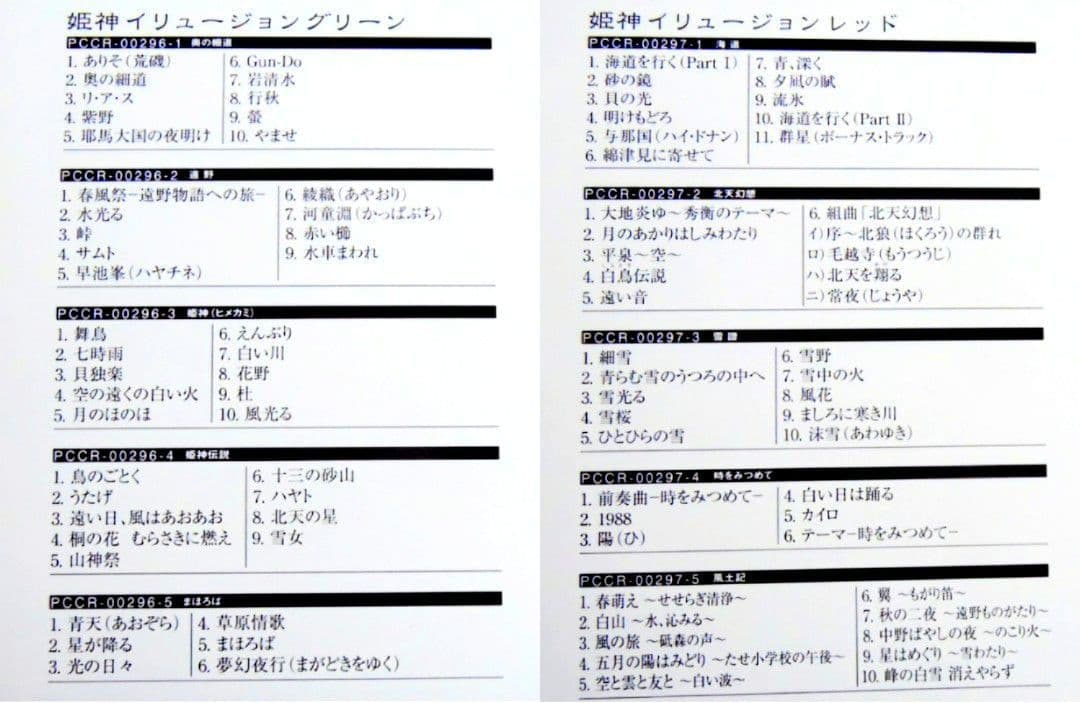 姫神イリュージョングリーン
PCCR-00296-1 奥の細道
1. ありそ(荒磯)
2. 奥の細道
3. リ・ア・ス
4. 紫野
5. 耶馬大国の夜明け
6. Gun-Do
7. 岩清水
8. 行秋
9. 螢
10. やませ
PCCR-00296-2 遠野
1. 春風祭−遠野物語への旅−
2. 水光る
3. 峠
4. サムト
5. 早池峯(ハヤチネ)
6. 綾織(あやおり)
7. 河童淵(かっぱぶち)
8. 赤い櫛
9. 水車まわれ
PCCR-00296-3 姫神(ヒメカミ)
1. 舞鳥
2. 七時雨
3. 貝独楽
4. 空の遠くの白い火
5. 月のほのほ
6. えんぶり
7. 白い川
8. 花野
9. 杜
10. 風光る
PCCR-00296-4 姫神伝説
1. 鳥のごとく
2. うたげ
3. 遠い日、風はあおあお
4. 桐の花 むらさきに燃え
5. 山神祭
6. 十三の砂山
7. ハヤト
8. 北天の星
9. 雪女
PCCR-00296-5 まほろば
1. 青天(あおぞら)
2. 星が降る
3. 光の日々
4. 草原情歌
5. まほろば
6. 夢幻夜行(まがどきをゆく)
姫神イリュージョンレッド
PCCR-00297-1 海道
1. 海道を行く(Part I)
2. 砂の鏡
3. 貝の光
4. 明けもどろ
5. 与那国(ハイ・ドナン)
6. 綿津見に寄せて
7. 青、深く
8. 夕凪の賦
9. 流氷
10. 海道を行く(Part II)
11. 群星(ボーナス・トラック)
PCCR-00297-2 北天幻想
1. 大地炎ゆ〜秀衡のテーマ〜
2. 月のあかりはしみわたり
3. 平泉〜空〜
4. 白鳥伝説
5. 遠い音
6. 組曲「北天幻想」
イ)序〜北狼(ほくろう)の群れ
ロ)毛越寺(もうつうじ)
ハ)北天を翔る
ニ)常夜(じょうや)
PCCR-00297-3 雪譜
1. 細雪
2. 青らむ雪のうつろの中へ
3. 雪光る
4. 雪桜
5. ひとひらの雪
6. 雪野
7. 雪中の火
8. 風花
9. ましろに寒き川
10. 沫雪(あわゆき)
PCCR-00297-4 時をみつめて
1. 前奏曲−時をみつめて−
2. 1988
3. 陽(ひ)
4. 白い日は踊る
5. カイロ
6. テーマ−時をみつめて−
PCCR-00297-5 風土記
1. 春萌え 〜せせらぎ清浄〜
2. 白山 〜水、沁みる〜
3. 風の旅 〜砥森の声〜
4. 五月の陽はみどり 〜たせ小学校の午後〜
5. 空と雲と友と 〜白い波〜
6. 翼 〜もがり笛〜
7. 秋の二夜 〜遠野ものがたり〜
8. 中野ばやしの夜 〜のこり火〜
9. 星はめぐり 〜雪わたり〜
10. 峰の白雪 消えやらず